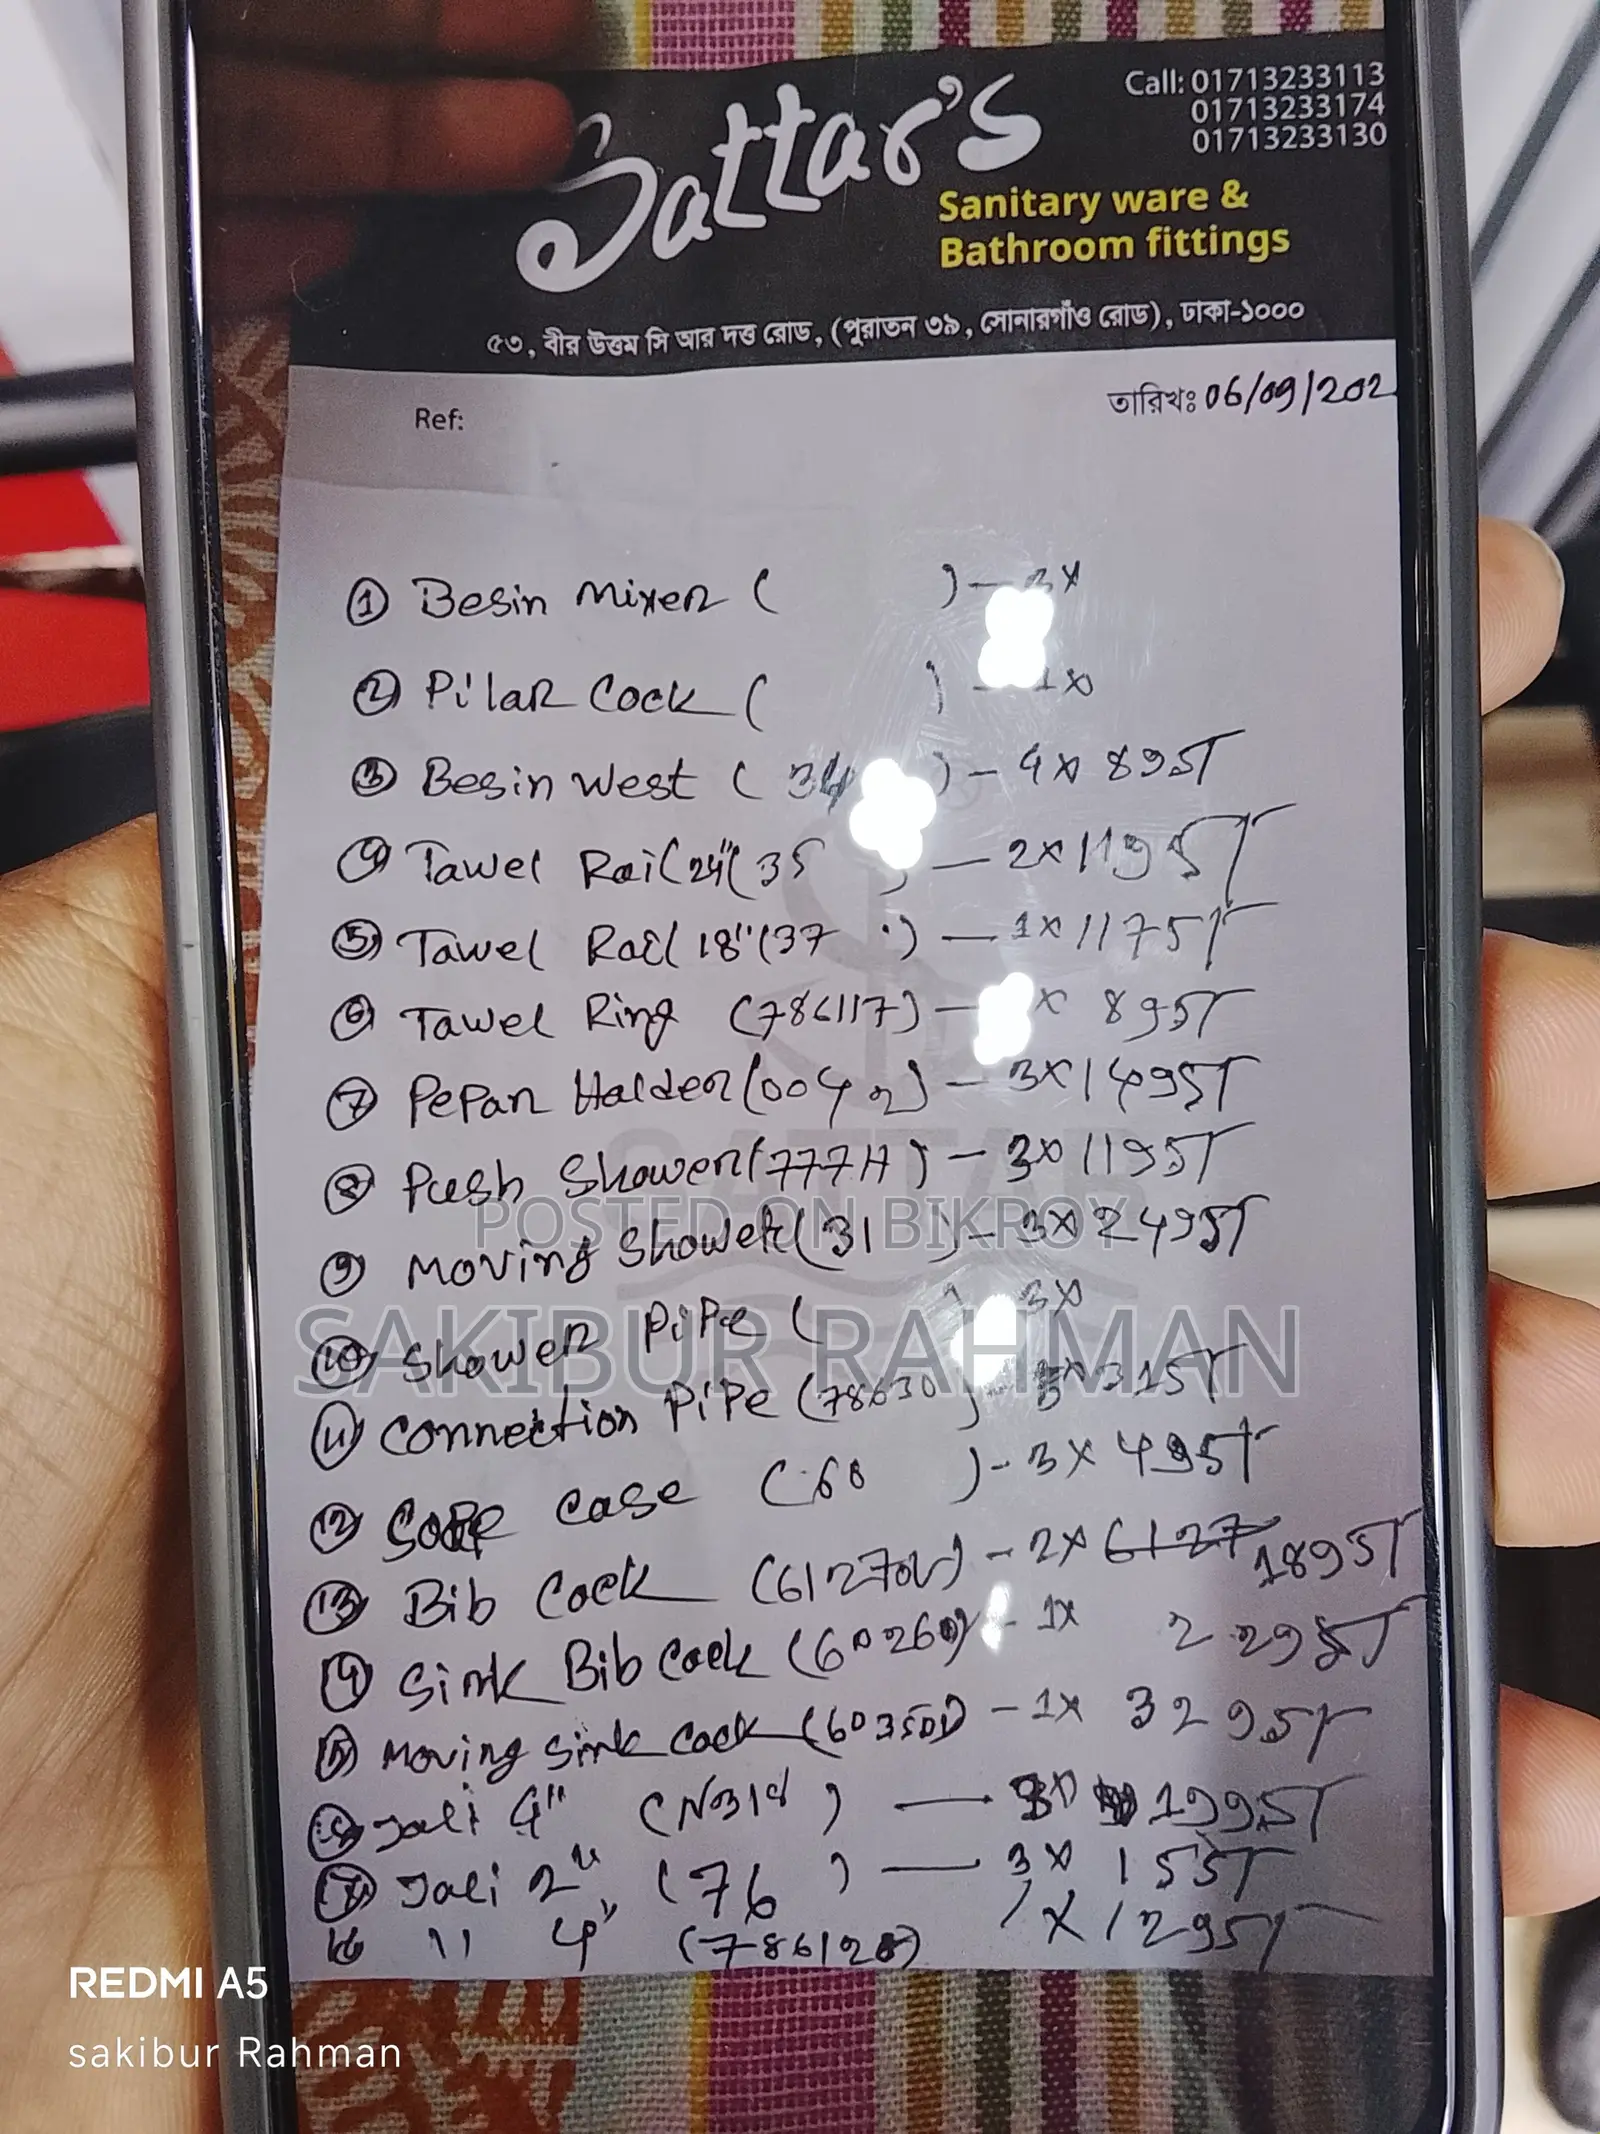 Sattar's
Call: 01713233113
01713233174
01713233130
Sanitary ware &
Bathroom fittings
৫৩, বীর উত্তম সি আর দত্ত রোড, (পুরাতন ৩৯, সোনারগাঁও রোড), ঢাকা-১০০০
তারিখঃ 06/09/202
Ref:
① Besin Mixer ( ) - 3x
② Pilar Cock ( ) - 1x
③ Besin West ( 34 ) - 4x 895T
④ Tawel Rail 24" ( 35 ) - 2x 1195T
⑤ Tawel Rail 18" (37 ) - 1x 1175T
⑥ Tawel Ring (786117) - x 895T
⑦ PePar Halder (004 2) - 3x 1495T
⑧ Push Shower (777H) - 3x 1195T
⑨ Moving Shower (31 ) - 3x 2495T
⑩ Shower PiPe ( ) 3x
⑪ Connection PiPe (78630 ) - x 315T
⑫ Sope Case (60 ) - 3x 495T
⑬ Bib Cock (61270 ) - 2x 6127 1895T
⑭ Sink Bib Cock (60260) - 1x 2295T
⑮ Moving Sink Cock (60350 ) - 1x 3295T
Jali 4" (N314 ) - 3x 1995T
⑰ Jali 2" (76 ) - 3x 155T
16 11 4" (786128) 1x 1295T
POSTED ON BIKROY
SAKIBUR RAHMAN
SATTAR
REDMI A5
sakibur Rahman